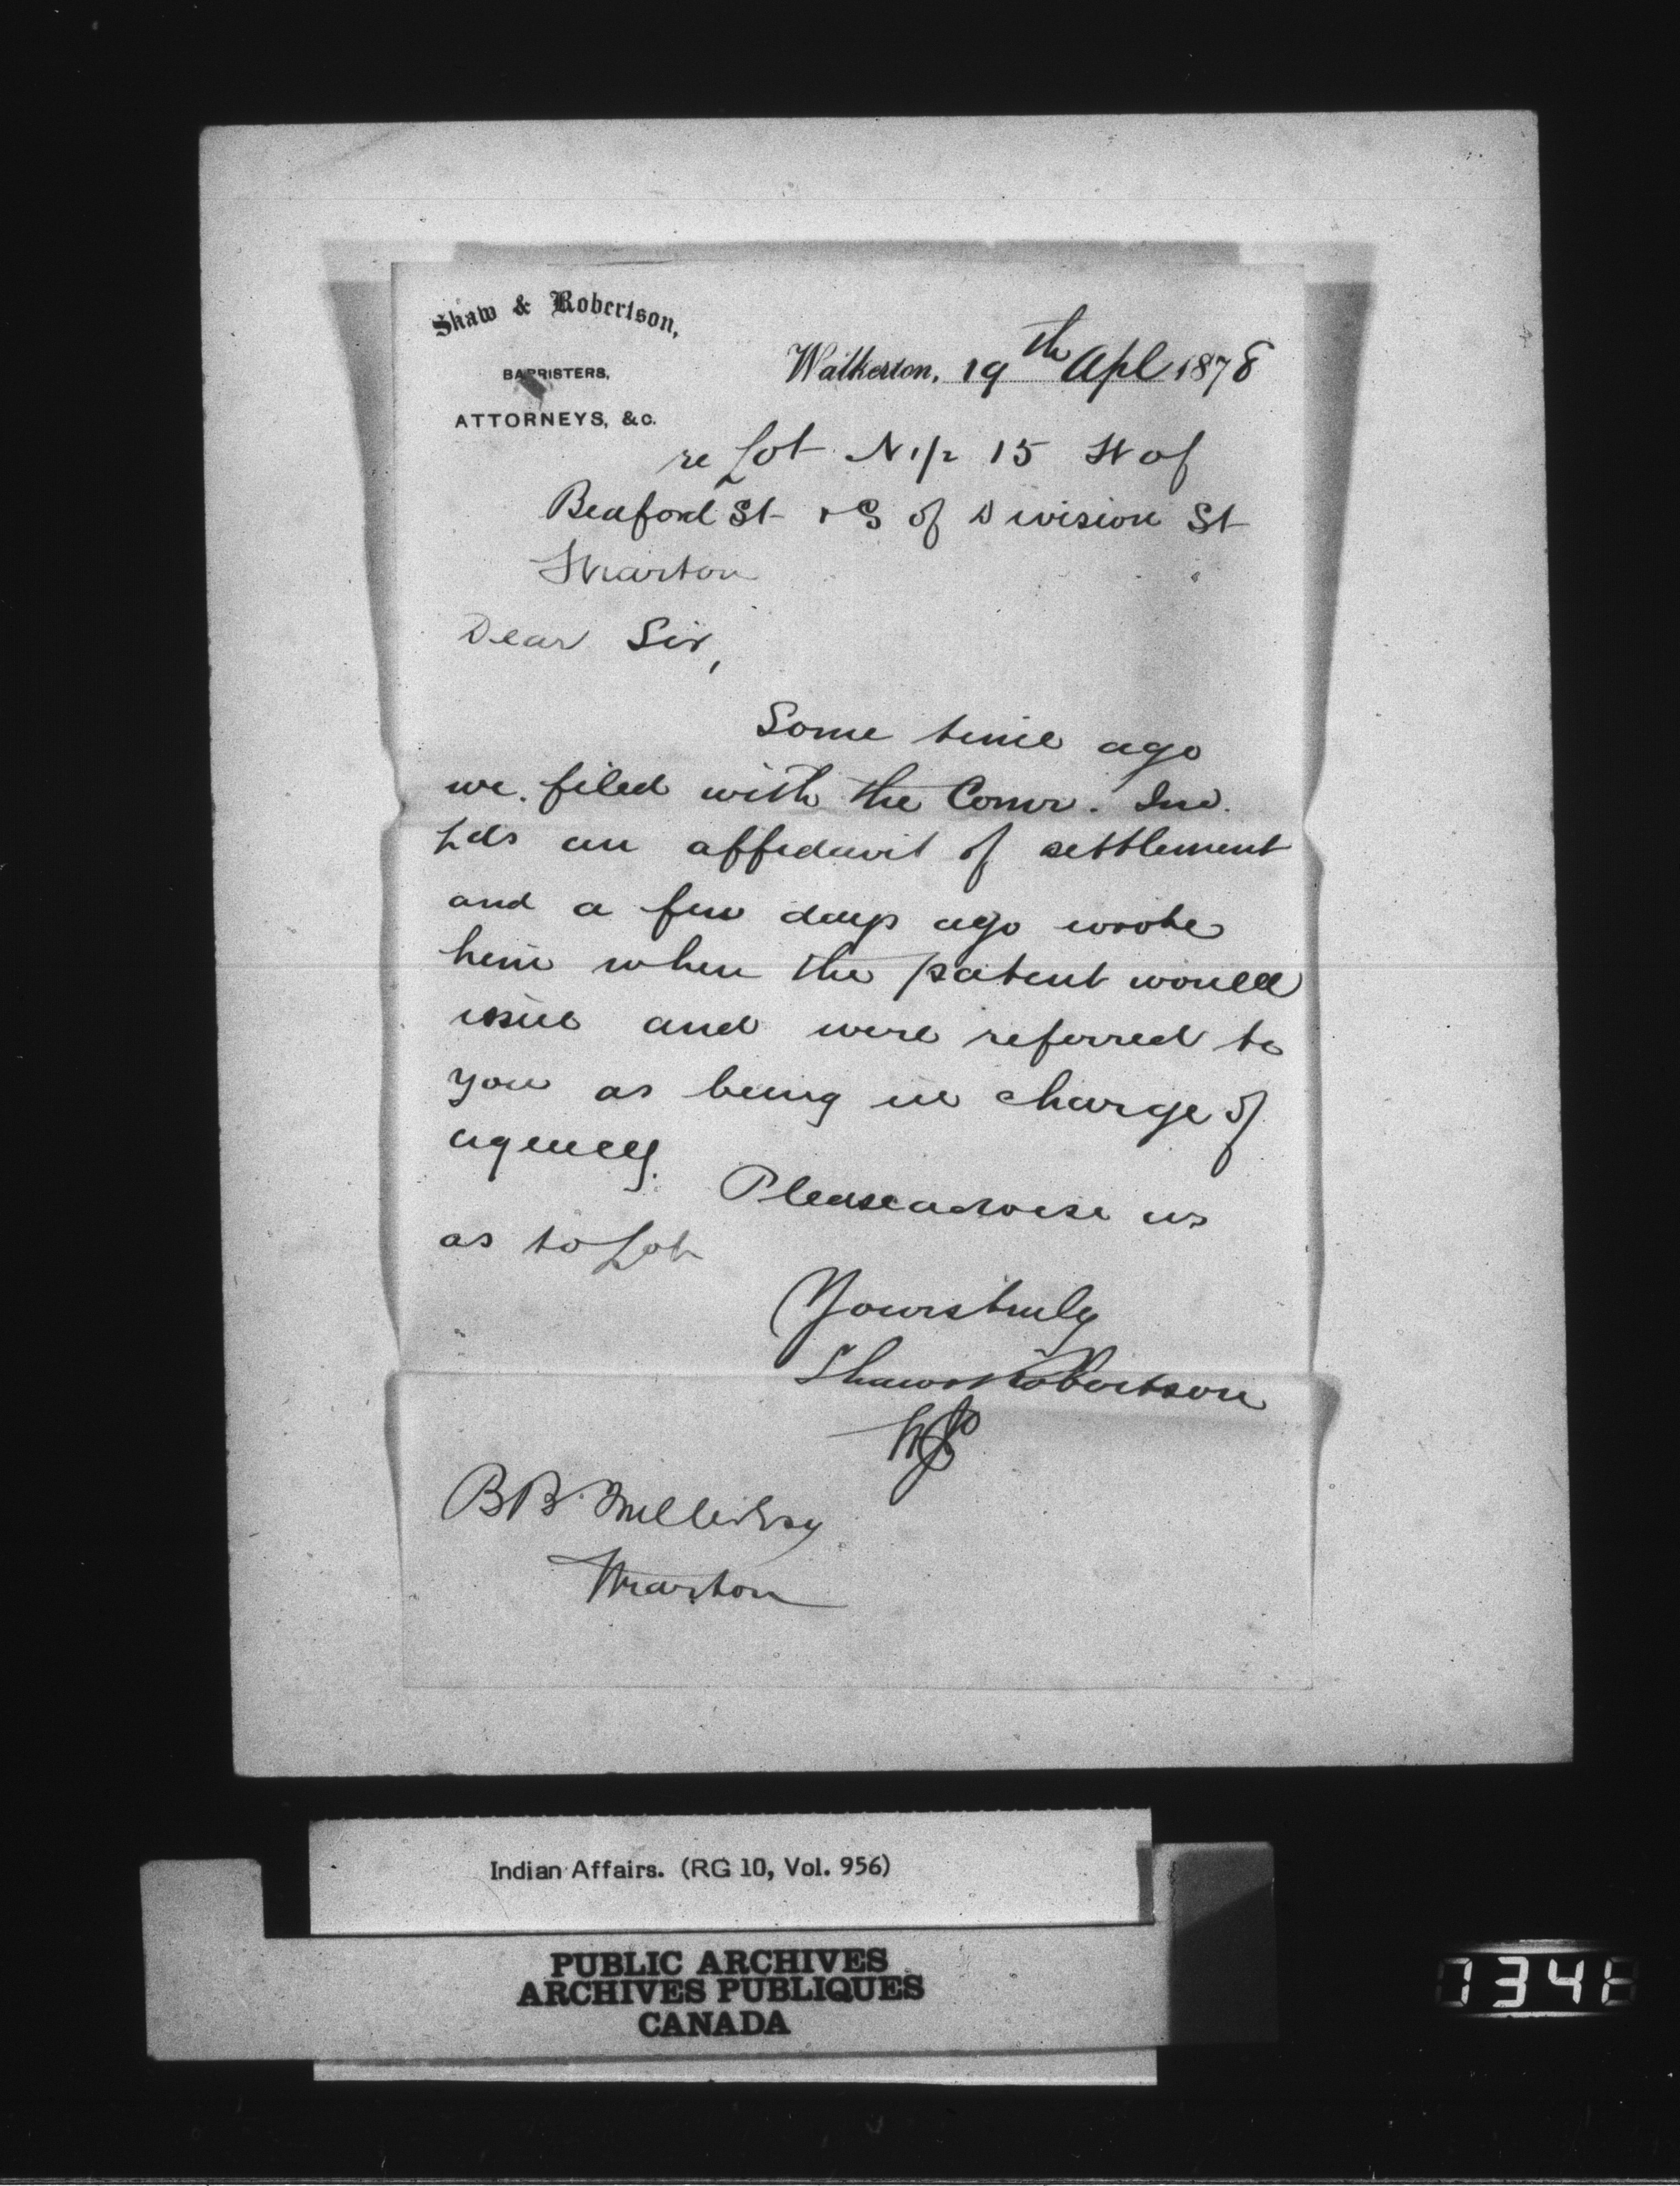 Shaw & Robertson,
BARRISTERS,
ATTORNEYS, &c.
Walkerton, 19th Apl 1878
re Lot N 1/2 15 W of
Beaford St & S of Division St
Wiarton
Dear Sir,
Some time ago
we filed with the Comr. Ind.
Lds an affidavit of settlement
and a few days ago wrote
him when the patent would
issue and were referred to
you as being in charge of
agency.
Please advise us
as to Lot
Yours truly
Shaw & Robertson
B B Miller Esq
Wiarton
Indian Affairs. (RG 10, Vol. 956)
PUBLIC ARCHIVES
ARCHIVES PUBLIQUES
CANADA